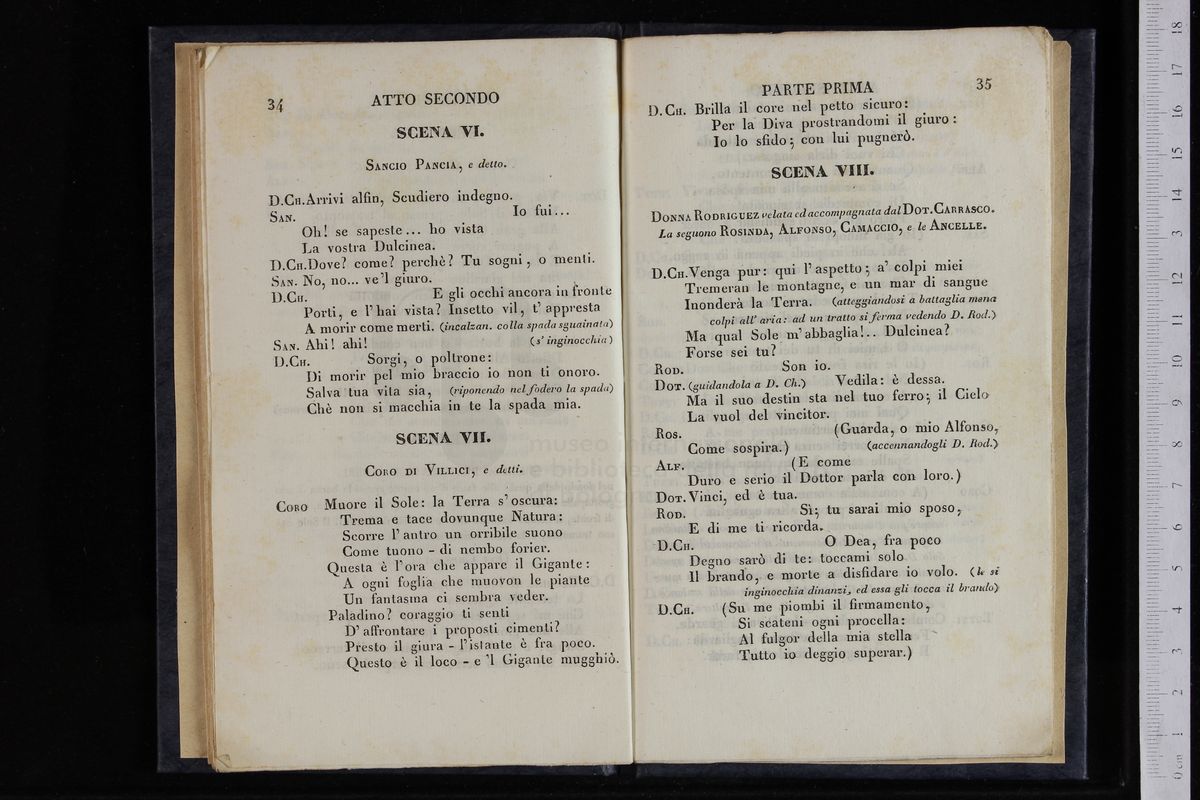 34
ATTO SECONDO
SCENA VI.
SANCIO PANCIA, e detto.
D.CH. Arrivi alfin, Scudiero indegno.
SAN. Io fui...
Oh! se sapeste... ho vista
La vostra Dulcinea.
D.CH. Dove? come? perchè? Tu sogni, o menti.
SAN. No, no... ve'l giuro.
D.CH. E gli occhi ancora in fronte
Porti, e l'hai vista? Insetto vil, t'appresta
A morir come merti. (incalzan. colla spada sguainata)
SAN. Ahi! ahi! (s'inginocchia)
D.CH. Sorgi, o poltrone:
Di morir pel mio braccio io non ti onoro.
Salva tua vita sia, (riponendo nel fodero la spada)
Chè non si macchia in te la spada mia.
SCENA VII.
CORO DI VILLICI, e detti.
CORO Muore il Sole: la Terra s'oscura:
Trema e tace dovunque Natura:
Scorre l'antro un orribile suono
Come tuono - di nembo forier.
Questa è l'ora che appare il Gigante:
A ogni foglia che muovon le piante
Un fantasma ci sembra veder.
Paladino? coraggio ti senti
D'affrontare i proposti cimenti?
Presto il giura - l'istante è fra poco.
Questo è il loco - e 'l Gigante mugghiò.
PARTE PRIMA
35
D.CH. Brilla il core nel petto sicuro:
Per la Diva prostrandomi il giuro:
Io lo sfido; con lui pugnerò.
SCENA VIII.
DONNA RODRIGUEZ velata ed accompagnata dal DOT. CARRASCO.
La seguono ROSINDA, ALFONSO, CAMACCIO, e le ANCELLE.
D.CH. Venga pur: qui l'aspetto; a' colpi miei
Tremeran le montagne, e un mar di sangue
Inonderà la Terra. (atteggiandosi a battaglia mena
colpi all'aria: ad un tratto si ferma vedendo D. Rod.)
Ma qual Sole m'abbaglia!.. Dulcinea?
Forse sei tu?
ROD. Son io.
DOT. (guidandola a D. Ch.) Vedila: è dessa.
Ma il suo destin sta nel tuo ferro; il Cielo
La vuol del vincitor.
ROS. (Guarda, o mio Alfonso,
Come sospira.) (accennandogli D. Rod.)
ALF. (E come
Duro e serio il Dottor parla con loro.)
DOT. Vinci, ed è tua.
ROD. Sì; tu sarai mio sposo,
E di me ti ricorda.
D.CH. O Dea, fra poco
Degno sarò di te: toccami solo
Il brando, e morte a disfidare io volo. (le si
inginocchia dinanzi, ed essa gli tocca il brando)
D.CH. (Su me piombi il firmamento,
Si scateni ogni procella:
Al fulgor della mia stella
Tutto io deggio superar.)